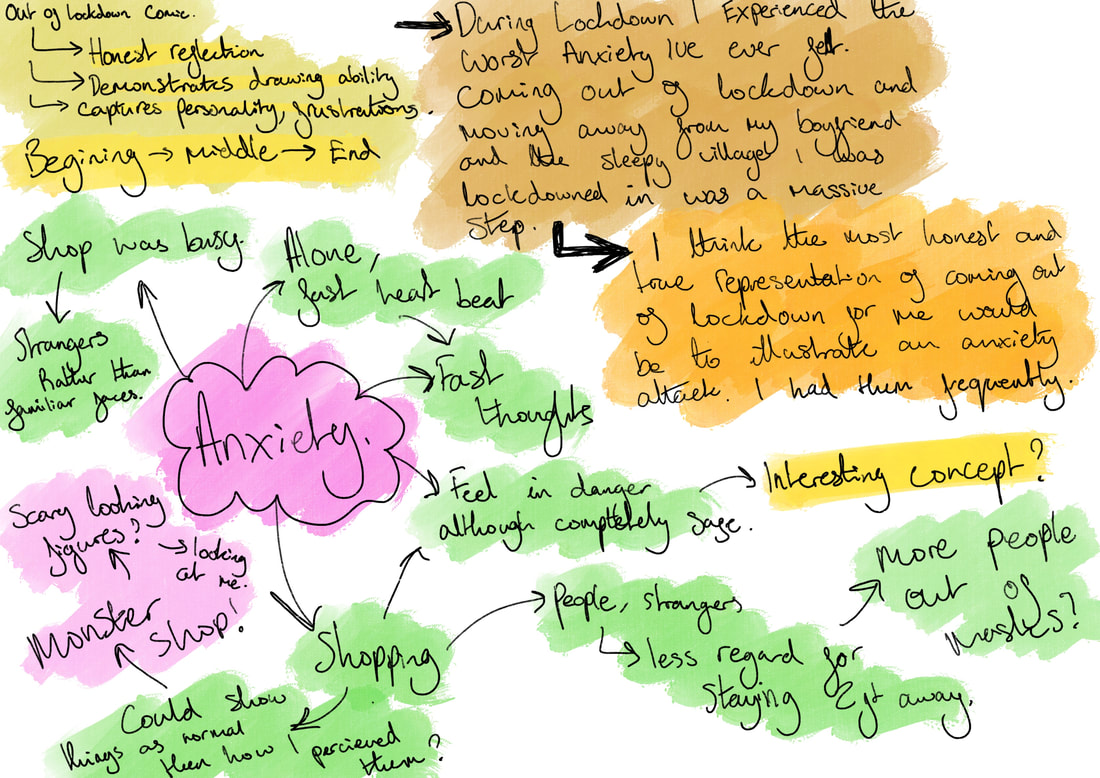 Out of lockdown comic.
Honest reflection
Demonstrates drawing ability
Captures personality, frustrations.
Begining → Middle → End
During Lockdown I Experienced the
worst Anxiety Ive ever felt.
Coming out of lockdown and
moving away from my boyfriend
and the sleepy village I was
lockdowned in was a massive
step.
I think the most honest and
true representation of coming out
of lockdown for me would
be to illustrate an anxiety
attack. I had them frequently.
Shop was busy.
Strangers
Rather than
familiar faces.
Alone,
fast heart beat
Fast
thoughts
Anxiety.
Feel in danger
although completely safe.
Interesting concept?
Scary looking
figures?
→ looking
at me.
Monster
shop!
Shopping
People, strangers
less regard for
staying 2ft away.
more people
out of
masks?
Could show
things as normal
then how I percieved
them?